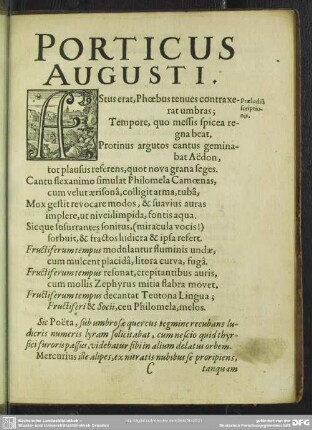 PORTICUS
AUGUSTI.
AStus erat, Phœbus tenues contraxe-
rat umbras;
Tempore, quo messis spicea re-
gna beat,
Protinus argutos cantus gemina-
bat Aëdon,
tot plausus referens, quot nova grana seges.
Cantu flexanimo simulat Philomela Camœnas,
cum velut ærisonâ, colligit arma, tubâ,
Mox gestit revocare modos, & suavius auras
implere, ut nivei limpida, fontis aqua.
Sicque insurrantes sonitus, (miracula vocis!)
sorbuit, & fractos ludicra & ipsa refert.
Fructiferum tempus modulantur fluminis undæ,
cum mulcent placidâ, litora curva, fugâ.
Fructiferum tempus resonat, crepitantibus auris,
cum mollis Zephyrus mitia flabra movet,
Fructiferum tempus decantat Teutona Lingua;
Fructiferi & Socii, ceu Philomela, melos.
Sic Poëta, sub umbrosæ quercus tegmine recubans lu-
dicris numeris lyram solicitabat, cum nescio quid thyr-
sici furoris passus, videbatur sibi in alium delatus orbem.
Mercurius ille alipes, ex nitratis nubibus se proripiens,
C tanquam